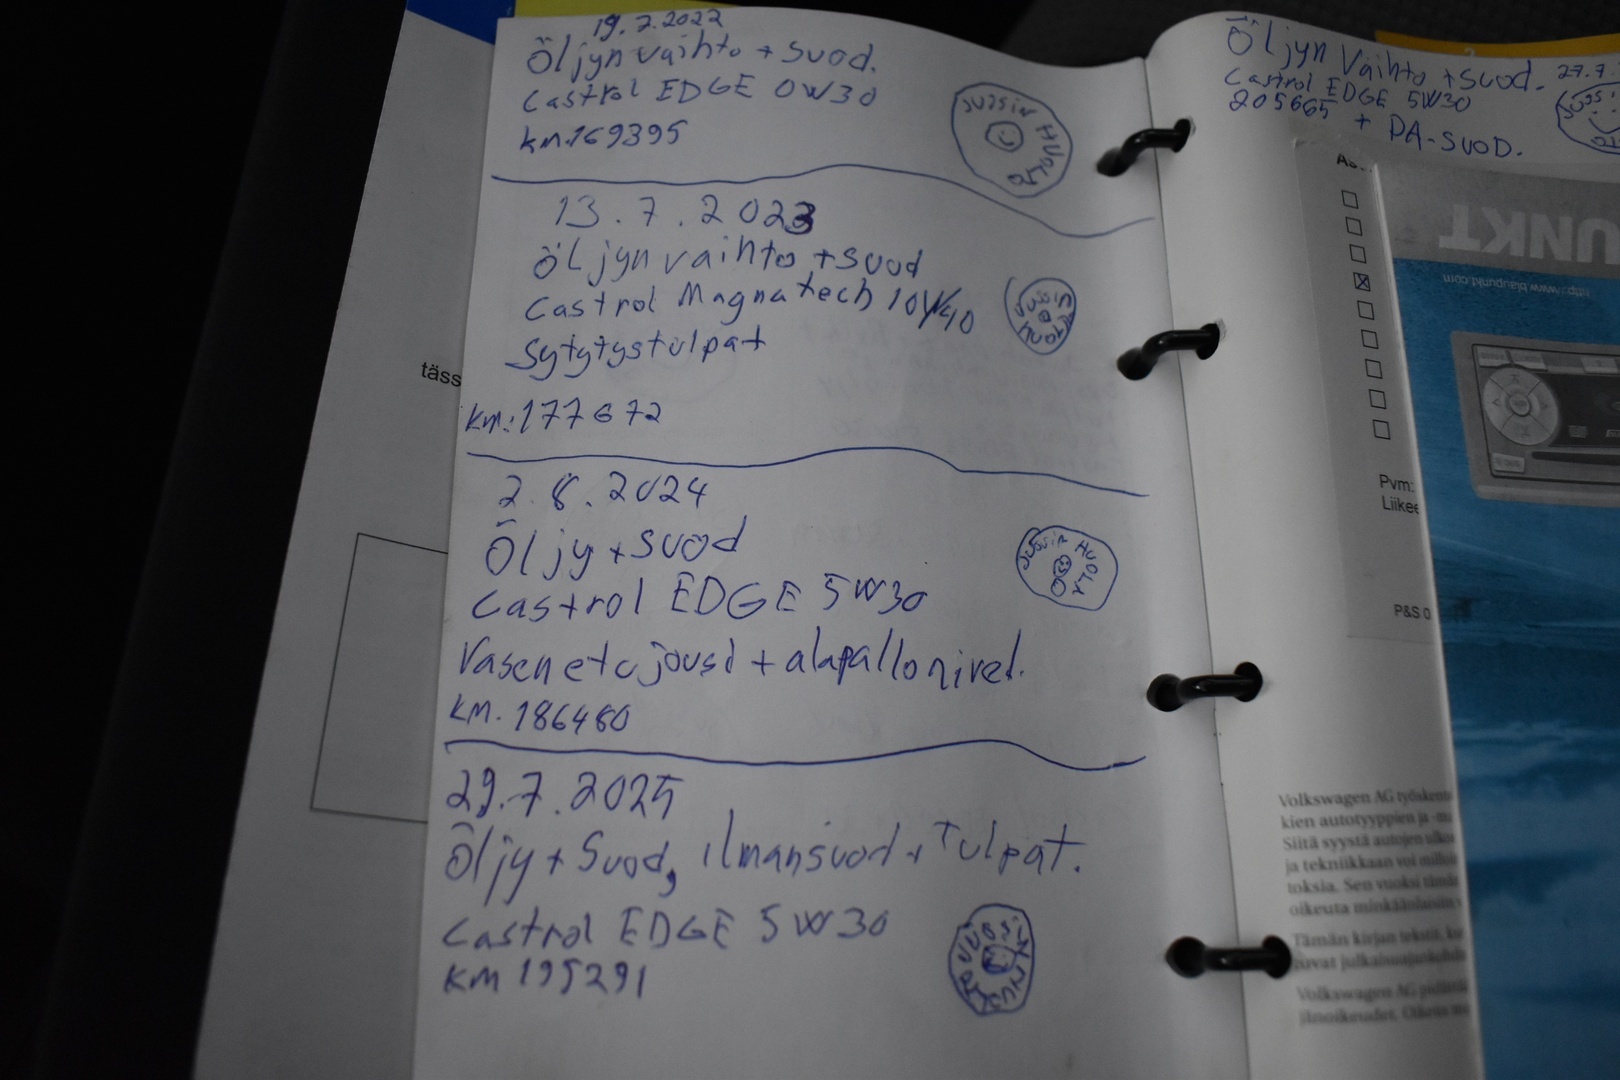 19.7.2022
Öljyn vaihto + suod.
Castrol EDGE 0W30
km.169395
JUSSIN HUOLTO
13.7.2023
Öljyn vaihto + suod
Castrol Magnatech 10W40
Sytytystulpat
km:177672
JUSSIN HUOLTO
2.8.2024
Öljy + suod
Castrol EDGE 5W30
Vasen etujousi + alapallonivel.
KM. 186480
JUSSIN HUOLTO
29.7.2025
Öljy + Suod, ilmansuod + Tulpat.
Castrol EDGE 5W30
KM 195291
JUSSIN HUOLTO
täss
Öljyn Vaihto + suod. 27.7.
Castrol EDGE 5W30
205665 + PA-SUOD.
JUSSI
UNKT
http://www.blaupunkt.com
Pvm:
Liikee
P&S 0
Volkswagen AG työskente
kien autotyyppien ja -m
Siitä syystä autojen ulko
ja tekniikkaan voi milloi
toksia. Sen vuoksi tämä
oikeuta minkäänlaisiin v
Tämän kirjan tekstit, ku
Volkswagen AG pidättä